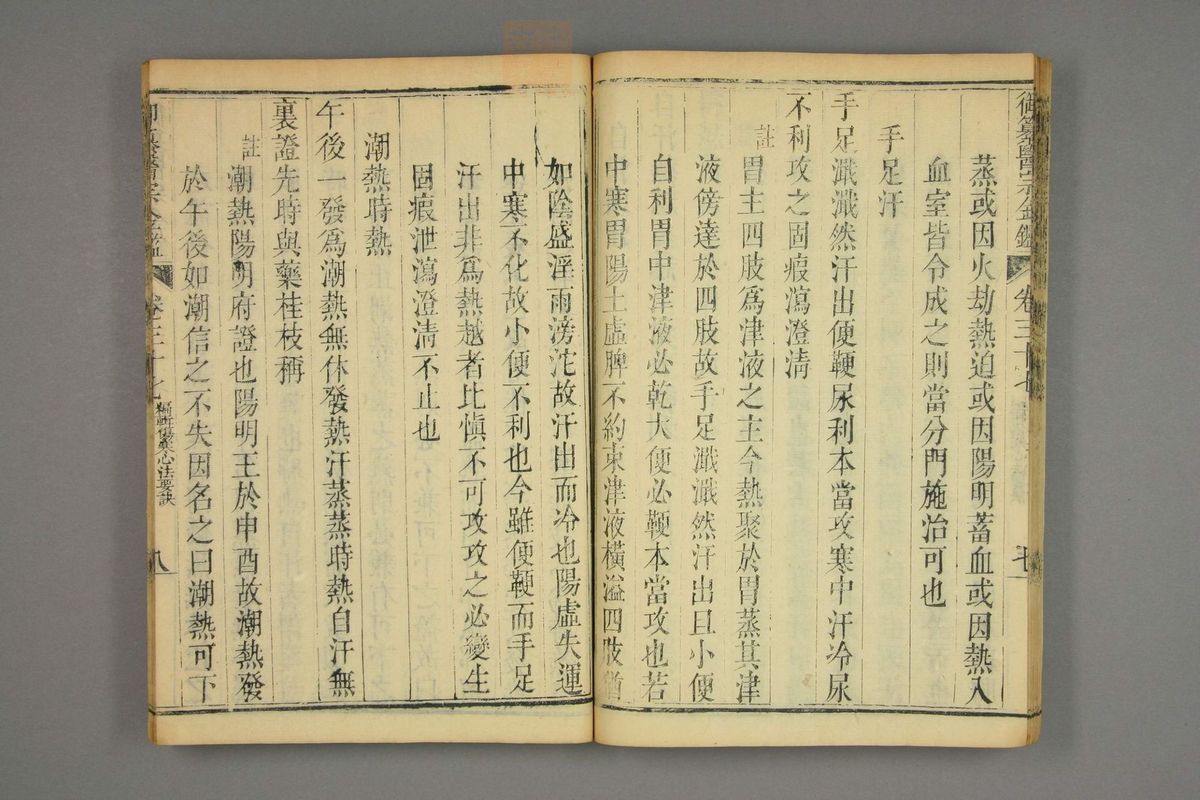 御纂醫宗金鑑 卷三十七 七
蒸或因火劫熱迫或因陽明蓄血或因熱入
血室皆令成之則當分門施治可也
手足汗
手足濈濈然汗出便鞕尿利本當攻寒中汗冷尿
不利攻之固瘕瀉澄清
註胃主四肢爲津液之主今熱聚於胃蒸其津
液傍達於四肢故手足濈濈然汗出且小便
自利胃中津液必乾大便必鞕本當攻也若
中寒胃陽土虛脾不約束津液橫溢四肢猶
如陰盛淫雨滂沱故汗出而冷也陽虛失運
中寒不化故小便不利也今雖便鞕而手足
汗出非爲熱越者比慎不可攻攻之必變生
固瘕泄瀉澄清不止也
潮熱時熱
午後一發爲潮熱無休發熱汗蒸蒸時熱自汗無
裏證先時與藥桂枝稱
註潮熱陽明府證也陽明王於申酉故潮熱發
於午後如潮信之不失因名之曰潮熱可下
御纂醫宗金鑑 卷三十七 編輯傷寒心法要訣 八